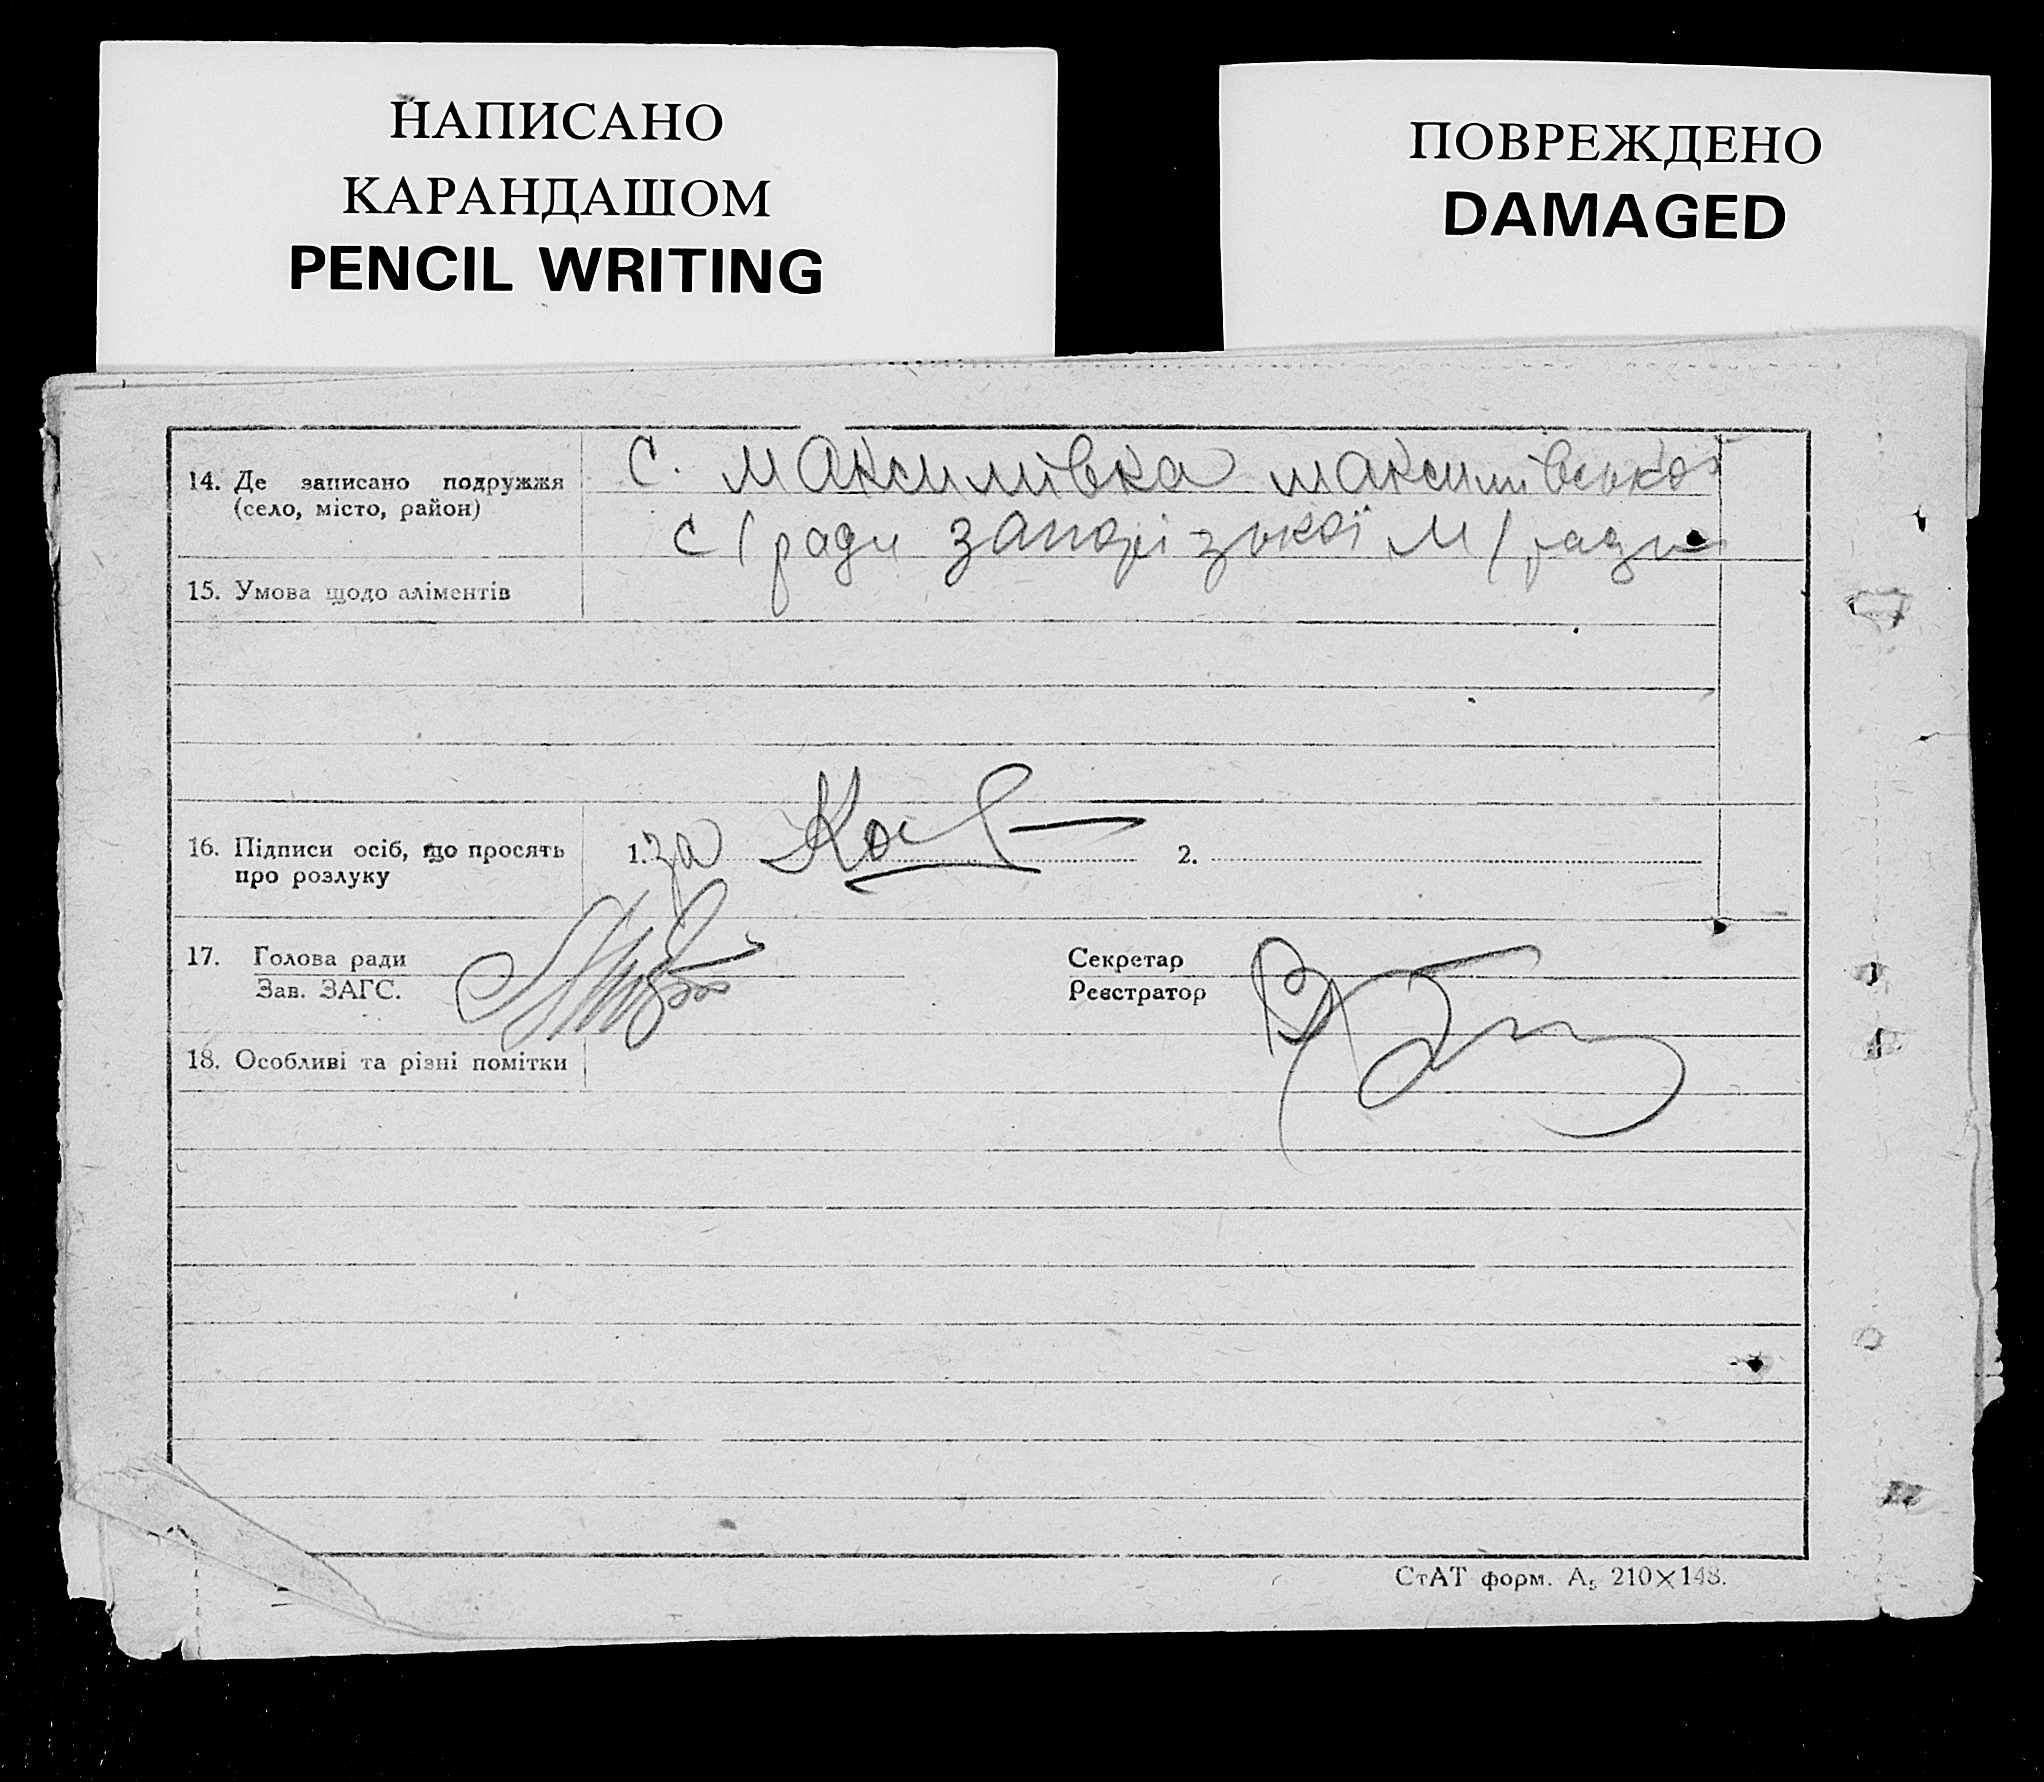 НАПИСАНО
КАРАНДАШОМ
PENCIL WRITING
ПОВРЕЖДЕНО
DAMAGED
14. Де записано подружжя
(село, місто, район)
с. Максимівка максимівської
с/ради запорізької м/ради
15. Умова щодо аліментів
16. Підписи осіб, що просять
про розлуку
1. за
2.
17. Голова ради
Зав. ЗАГС.
Секретар
Реєстратор
18. Особливі та різні помітки
СтАТ форм. А₅ 210×148.